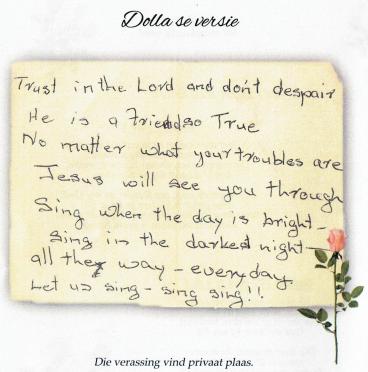 Dolla se versie
Trust in the Lord and don't despair
He is a Friend so True
No matter what your troubles are
Jesus will see you through
Sing when the day is bright -
Sing in the darkest night -
all the way - everyday
Let us sing - sing sing!!
Die verassing vind privaat plaas.